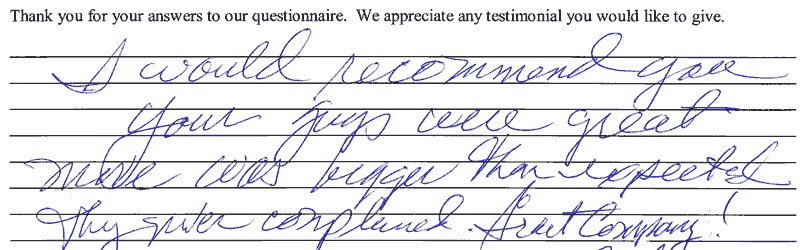 Thank you for your answers to our questionnaire. We appreciate any testimonial you would like to give.
I would recommend you
Your guys were great
move was bigger than expected
They never complained. Great Company!